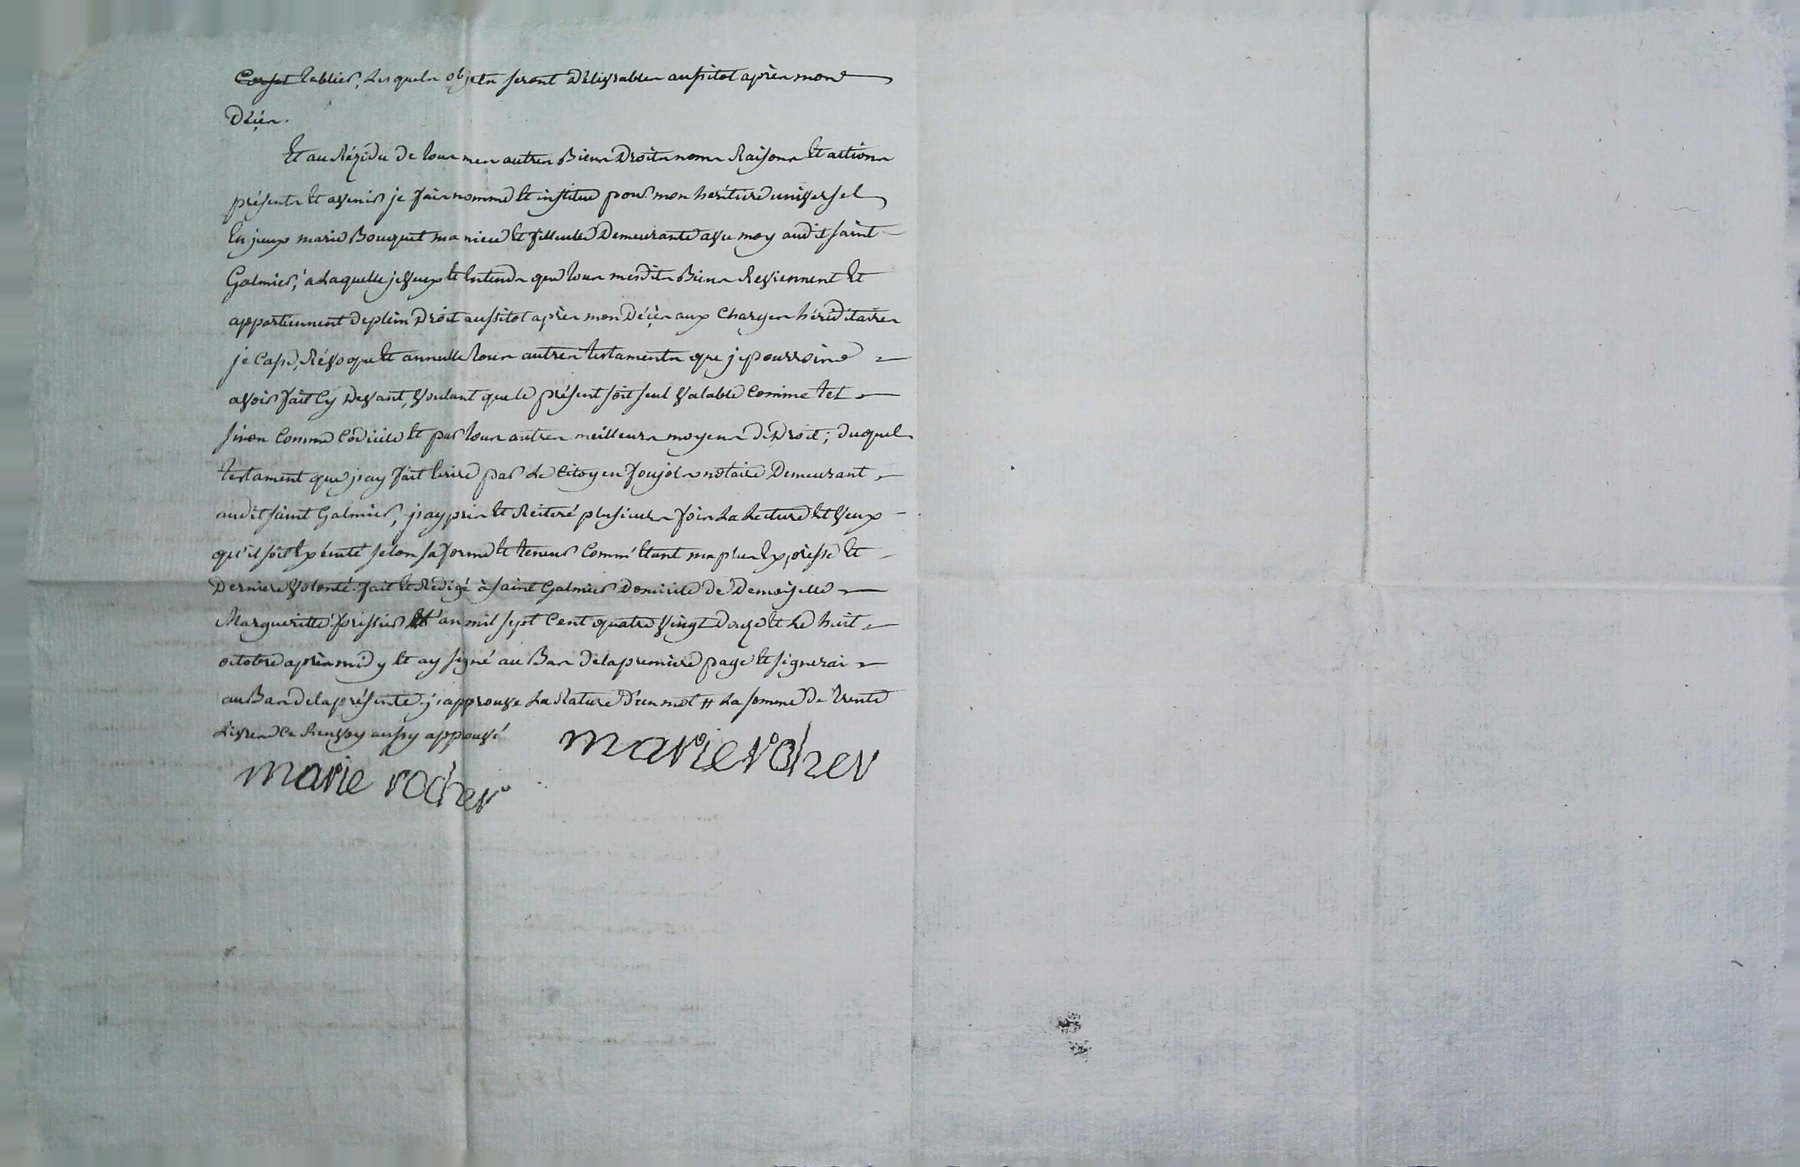 Corset tablier, lesquels objets seront délivrables aussitot après mon
Décès.
Et au Rézidu de tous mes autres Biens Droits noms Raisons et actions
présents et avenir je fais nomme et institue pour mon héritiere universel
marie Bouquet ma niece et filleulle Demeurante avec moy audit saint
Galmier, a Laquelle je veux et Entends que tous mesdits Biens Reviennent et
appartiennent de plein Droit aussitot après mon Décès aux charges héréditaires
je Casse, Révoque et annulle tous autres testaments que je pourrois
avoir fait Cy Devant, voulant que le présent soit seul valable comme tel
sinon comme Codicile et par tous autres meilleurs moyens de Droit; duquel
testament que j'ay fait Ecrire par Le Citoyen foujols notaire Demeurant
audit saint Galmier, j'ay pris et Reiteré plusieurs fois La Lecture et veux
qu'il soit Exécuté selon sa forme et teneur Comm' Etant ma plus Expresse et
Derniere volonté. fait et Rédigé à saint Galmier Domicile de Demoiselle
Margueritte frissier L'an mil sept Cent quatre vingt Douze et Le huit
octobre après midy et ay signé au Bas de la premiere page et signerai
au Bas de la présente. j'approuve La Rature D'un mot # La somme de trente
Livres Ce Renvoy aussy approuvé
marie rocher
marie rocher